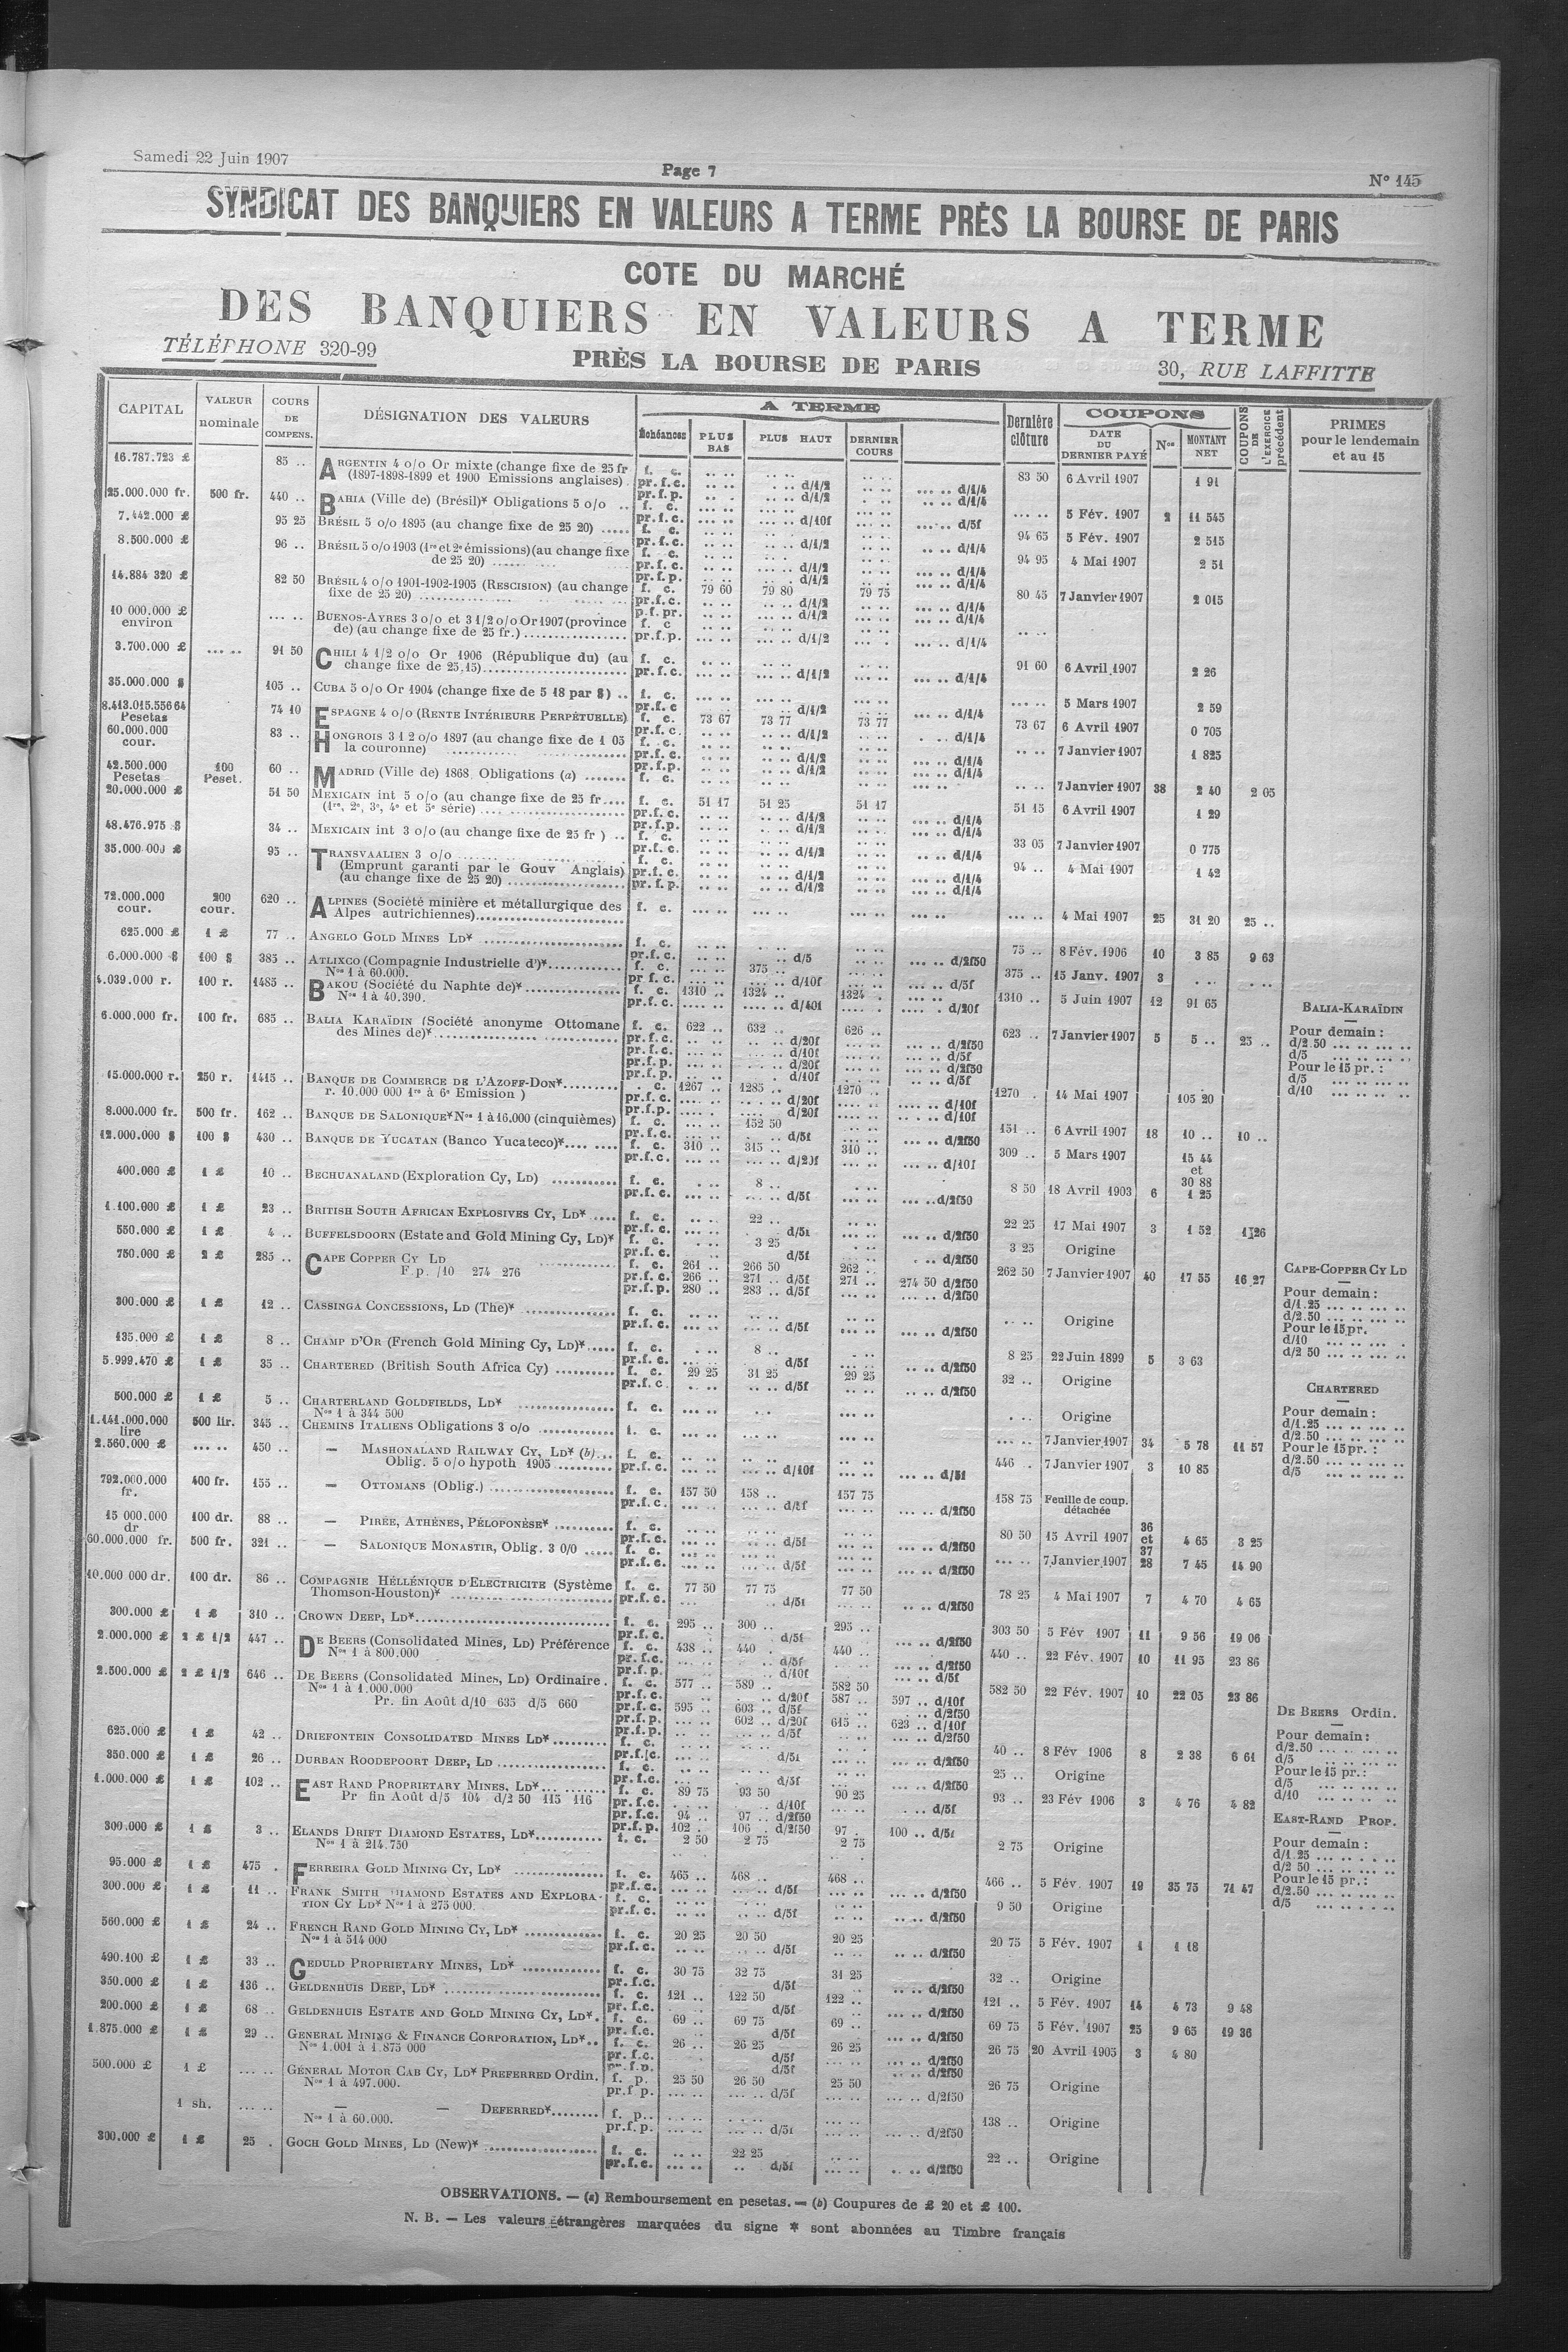 Samedi 22 Juin 1907
Page 7
N° 145
SYNDICAT DES BANQUIERS EN VALEURS A TERME PRÈS LA BOURSE DE PARIS
COTE DU MARCHÉ
DES BANQUIERS EN VALEURS A TERME
TÉLÉPHONE 320-99
PRÈS LA BOURSE DE PARIS
30, RUE LAFFITTE
CAPITAL | VALEUR nominale | COURS DE COMPENS. | DÉSIGNATION DES VALEURS | A TERME | Échéances | PLUS BAS | PLUS HAUT | DERNIER COURS | Dernière clôture | COUPONS | DATE DU DERNIER PAYÉ | Nos | MONTANT NET | COUPONS DE L'EXERCICE précédent | PRIMES pour le lendemain et au 15
16.787.723 £ 85 .. ARGENTIN 4 o/o Or mixte (change fixe de 25 fr f. c. 83 50 6 Avril 1907 1 91
(1897-1898-1899 et 1900 Emissions anglaises). pr.f.c. d/1/2 d/1/4
pr.f.p. d/1/2 d/1/4
25.000.000 fr. 500 fr. 440 .. BAHIA (Ville de) (Brésil)* Obligations 5 o/o .. f. c. 5 Fév. 1907 2 11 545
pr.f.c. d/10f d/5f
7.442.000 £ 95 25 BRÉSIL 5 o/o 1895 (au change fixe de 25 20) ..... f. c. 94 65 5 Fév. 1907 2 515
pr.f.c. d/1/2 d/1/4
8.500.000 £ 96 .. BRÉSIL 5 o/o 1903 (1re et 2e émissions) (au change fixe f. c. 94 95 4 Mai 1907 2 51
de 25 20) pr.f.c. d/1/2 d/1/4
pr.f.p. d/1/2 d/1/4
14.884 320 £ 82 50 BRÉSIL 4 o/o 1901-1902-1905 (RESCISION) (au change f. c. 79 60 79 80 79 75 80 45 7 Janvier 1907 2 015
fixe de 25 20) pr.f.c. d/1/2 d/1/4
p.f.pr. d/1/2 d/1/4
10 000.000 £ environ BUENOS-AYRES 3 o/o et 3 1/2 o/o Or 1907 (province f. c
de) (au change fixe de 25 fr.) pr.f.p. d/1/2 d/1/4
3.700.000 £ 91 50 CHILI 4 1/2 o/o Or 1906 (République du) (au f. c. 91 60 6 Avril 1907 2 26
change fixe de 25,15) pr.f.c. d/1/2 d/1/4
35.000.000 $ 105 .. CUBA 5 o/o Or 1904 (change fixe de 5 18 par $) .. f. c. 5 Mars 1907 2 59
pr.f.c d/1/2 d/1/4
8.413.015.556 64 Pesetas 74 10 ESPAGNE 4 o/o (RENTE INTÉRIEURE PERPÉTUELLE) f. c. 73 67 73 77 73 77 73 67 6 Avril 1907 0 705
pr.f.c. d/1/2 d/1/4
60.000.000 cour. 83 .. HONGROIS 3 1 2 o/o 1897 (au change fixe de 1 05 f. c. 7 Janvier 1907 1 825
la couronne) pr.f.c. d/1/2 d/1/4
pr.f.p. d/1/2 d/1/4
42.500.000 Pesetas 100 Peset. 60 .. MADRID (Ville de) 1868 Obligations (a) f. c. 7 Janvier 1907 38 2 40 2 05
20.000.000 £ 51 50 MEXICAIN int 5 o/o (au change fixe de 25 fr.... f. c. 51 17 51 25 51 17 51 15 6 Avril 1907 1 29
(1re, 2e, 3e, 4e et 5e série) pr.f.c. d/1/2 d/1/4
pr.f.p. d/1/2 d/1/4
48.476.975 $ 34 .. MEXICAIN int 3 o/o (au change fixe de 25 fr ) .. f. c. 33 05 7 Janvier 1907 0 775
pr.f.c. d/1/2 d/1/4
35.000 000 £ 95 .. TRANSVAALIEN 3 o/o f. c. 94 .. 4 Mai 1907 1 42
(Emprunt garanti par le Gouv Anglais) pr.f.c. d/1/2 d/1/4
(au change fixe de 25 20) pr.f.p. d/1/2 d/1/4
72.000.000 cour. 200 cour. 620 .. ALPINES (Société minière et métallurgique des f. c. 4 Mai 1907 25 31 20 25 ..
Alpes autrichiennes)
625.000 £ 1 £ 77 .. ANGELO GOLD MINES LD* f. c. 75 .. 8 Fév. 1906 10 3 85 9 63
pr.f.c. d/5 d/2f50
6.000.000 $ 100 $ 385 .. ATLIXCO (Compagnie Industrielle d')* f. c. 375 .. 375 .. 15 Janv. 1907 3
Nos 1 à 60.000. pr f.c. d/10f d/5f
4.039.000 r. 100 r. 1485 .. BAKOU (Société du Naphte de)* f. c. 1310 .. 1324 .. 1324 . 1310 .. 5 Juin 1907 12 91 65
Nos 1 à 40.390. pr.f.c. d/40f d/20f
6.000.000 fr. 100 fr. 685 .. BALIA KARAÏDIN (Société anonyme Ottomane f. c. 622 .. 632 .. 626 .. 623 .. 7 Janvier 1907 5 5 .. 25 ..
des Mines de)* pr.f.c. d/20f d/2f50
pr.f.c. d/10f d/5f
pr.f.p. d/20f d/2f50
pr.f.p. d/10f d/5f
15.000.000 r. 250 r. 1415 .. BANQUE DE COMMERCE DE L'AZOFF-DON* . c. 1267 .. 1285 .. 1270 .. 1270 . 14 Mai 1907 105 20
r. 10.000 000 1re à 6e Emission ) pr.f.c. d/20f d/10f
pr.f.p. d/20f d/10f
8.000.000 fr. 500 fr. 162 .. BANQUE DE SALONIQUE* Nos 1 à 16.000 (cinquièmes) f. c. 152 50 151 .. 6 Avril 1907 18 10 .. 10 ..
pr.f.c. d/5f d/2f50
12.000.000 $ 100 $ 430 .. BANQUE DE YUCATAN (Banco Yucateco)* f. c. 310 .. 315 .. 310 .. 309 .. 5 Mars 1907 15 44 et 30 88
pr.f.c. d/20f d/10f
400.000 £ 1 £ 10 .. BECHUANALAND (Exploration Cy, LD) f. c. 8 .. 8 50 18 Avril 1903 6 1 25
pr.f.c. d/5f d/2f50
1.100.000 £ 1 £ 23 .. BRITISH SOUTH AFRICAN EXPLOSIVES CY, LD* f. c. 22 .. 22 25 17 Mai 1907 3 1 52 1 26
pr.f.c. d/5f d/2f50
550.000 £ 1 £ 4 .. BUFFELSDOORN (Estate and Gold Mining Cy, LD)* f. c. 3 25 3 25 Origine
pr.f.c. d/5f d/2f50
750.000 £ 2 £ 285 .. CAPE COPPER CY LD f. c. 261 .. 266 50 262 .. 262 50 7 Janvier 1907 40 17 55 16 27
F. p. /10 274 276 pr.f.c. 266 .. 271 .. d/5f 271 .. 274 50 d/2f50
pr.f.p. 280 .. 283 .. d/5f d/2f50
300.000 £ 1 £ 12 .. CASSINGA CONCESSIONS, LD (The)* f. c. Origine
pr.f.c. d/5f d/2f50
135.000 £ 1 £ 8 .. CHAMP D'OR (French Gold Mining Cy, LD)* f. c. 8 .. 8 25 22 Juin 1899 5 3 63
pr.f.c. d/5f d/2f50
5.999.470 £ 1 £ 35 .. CHARTERED (British South Africa Cy) f. c. 29 25 31 25 29 25 32 .. Origine
pr.f.c d/5f d/2f50
500.000 £ 1 £ 5 .. CHARTERLAND GOLDFIELDS, LD* f. c. Origine
Nos 1 à 344 500
1.141.000.000 lire 500 lir. 345 .. CHEMINS ITALIENS Obligations 3 o/o f. c. 7 Janvier 1907 34 5 78 11 57
2.560.000 £ 450 .. — MASHONALAND RAILWAY CY, LD* (b) f. c. 446 . 7 Janvier 1907 3 10 85
Oblig. 5 o/o hypoth 1905 pr.f.c. d/10f d/5f
792.000.000 fr. 400 fr. 155 .. — OTTOMANS (Oblig.) f. c. 157 50 158 .. 157 75 158 75 Feuille de coup. détachée
pr.f.c. d/5f d/2f50
15 000.000 dr 100 dr. 88 .. — PIRÉE, ATHÈNES, PÉLOPONÈSE* f. c. 80 50 15 Avril 1907 36 et 37 4 65 3 25
pr.f.c. d/5f d/2f50
60.000.000 fr. 500 fr. 321 .. — SALONIQUE MONASTIR, Oblig. 3 0/0 f. c. 7 Janvier 1907 28 7 45 14 90
pr.f.c. d/5f d/2f50
10.000 000 dr. 100 dr. 86 .. COMPAGNIE HÉLLÉNIQUE D'ELECTRICITE (Système f. c. 77 50 77 75 77 50 78 25 4 Mai 1907 7 4 70 4 65
Thomson-Houston)* pr.f.c. d/5f d/2f50
300.000 £ 1 £ 310 .. CROWN DEEP, LD* f. c. 295 .. 300 .. 295 .. 303 50 5 Fév 1907 11 9 56 19 06
pr.f.c. d/5f d/2f50
2.000.000 £ 2 £ 1/2 447 .. DE BEERS (Consolidated Mines, LD) Préférence f. c. 438 .. 440 . 440 .. 440 .. 22 Fév. 1907 10 11 95 23 86
Nos 1 à 800.000 pr.f.c. d/5f d/2f50
pr.f.p. d/10f d/5f
2.500.000 £ 2 £ 1/2 646 .. DE BEERS (Consolidated Mines, LD) Ordinaire . f. c. 577 .. 589 .. 582 50 582 50 22 Fév. 1907 10 22 05 23 86
Nos 1 à 1.000.000 pr.f.c. d/20f 587 .. 597 .. d/10f
Pr. fin Août d/10 635 d/5 660 pr.f.c. 595 .. 603 .. d/5f d/2f50
pr.f.p. 602 .. d/20f 615 .. 623 .. d/10f
pr.f.p. d/5f d/2f50
625.000 £ 1 £ 42 .. DRIEFONTEIN CONSOLIDATED MINES LD* f. c. 40 .. 8 Fév 1906 8 2 38 6 61
pr.f.c. d/5f d/2f50
350.000 £ 1 £ 26 .. DURBAN ROODEPOORT DEEP, LD f. c. 25 .. Origine
pr.f.c. d/5f d/2f50
1.000.000 £ 1 £ 102 .. EAST RAND PROPRIETARY MINES, LD* f. c. 89 75 93 50 90 25 93 .. 23 Fév 1906 3 4 76 4 82
Pr fin Août d/5 104 d/2 50 115 116 pr.f.c. d/10f d/5f
pr.f.c. 94 .. 97 .. d/2f50
pr.f.p. 102 . 106 . d/2f50 97 . 100 .. d/5f
300.000 £ 1 £ 3 .. ELANDS DRIFT DIAMOND ESTATES, LD* f. c. 2 50 2 75 2 75 2 75 Origine
Nos 1 à 214.750
95.000 £ 1 £ 475 . FERREIRA GOLD MINING CY, LD* f. c. 465 .. 468 .. 468 .. 466 .. 5 Fév. 1907 19 35 75 71 47
pr.f.c. d/5f d/2f50
300.000 £ 1 £ 11 .. FRANK SMITH DIAMOND ESTATES AND EXPLORA- f. c. 9 50 Origine
TION CY LD* Nos 1 à 275 000. pr.f.c. d/5f d/2f50
560.000 £ 1 £ 24 .. FRENCH RAND GOLD MINING CY, LD* f. c. 20 25 20 50 20 25 20 75 5 Fév. 1907 1 1 18
Nos 1 à 514 000 pr.f.c. d/5f d/2f50
490.100 £ 1 £ 33 .. GEDULD PROPRIETARY MINES, LD* f. c. 30 75 32 75 31 25 32 .. Origine
pr.f.c. d/5f d/2f50
350.000 £ 1 £ 136 .. GELDENHUIS DEEP, LD* f. c. 121 .. 122 50 122 .. 121 .. 5 Fév. 1907 14 4 73 9 48
pr.f.c. d/5f d/2f50
200.000 £ 1 £ 68 .. GELDENHUIS ESTATE AND GOLD MINING CY, LD*. f. c. 69 .. 69 75 69 .. 69 75 5 Fév. 1907 25 9 65 19 36
pr.f.c. d/5f d/2f50
1.875.000 £ 1 £ 29 .. GENERAL MINING & FINANCE CORPORATION, LD*.. f. c. 26 .. 26 25 26 25 26 75 20 Avril 1905 3 4 80
Nos 1.001 à 1.875 000 pr.f.c. d/5f d/2f50
pr.f.p. d/5f d/2f50
500.000 £ 1 £ GÉNERAL MOTOR CAB CY, LD* PREFERRED Ordin. f. p. 25 50 26 50 25 50 26 75 Origine
Nos 1 à 497.000. pr.f p. d/5f d/2f50
1 sh. — — DEFERRED* f. p. 138 .. Origine
Nos 1 à 60.000. pr.f.p. d/5f d/2f50
300.000 £ 1 £ 25 . GOCH GOLD MINES, LD (New)* f. c. 22 25 22 .. Origine
pr.f.c. d/5f d/2f50
BALIA-KARAÏDIN
Pour demain :
d/2.50
d/5
Pour le 15 pr. :
d/5
d/10
CAPE-COPPER CY LD
Pour demain :
d/1.25
d/2.50
Pour le 15 pr.
d/10
d/2 50
CHARTERED
Pour demain :
d/1.25
d/2.50
Pour le 15 pr. :
d/2.50
d/5
DE BEERS Ordin.
Pour demain :
d/2.50
d/5
Pour le 15 pr. :
d/5
d/10
EAST-RAND PROP.
Pour demain :
d/1 25
d/2 50
Pour le 15 pr. :
d/2.50
d/5
OBSERVATIONS. — (a) Remboursement en pesetas. — (b) Coupures de £ 20 et £ 100.
N. B. — Les valeurs étrangères marquées du signe * sont abonnées au Timbre français